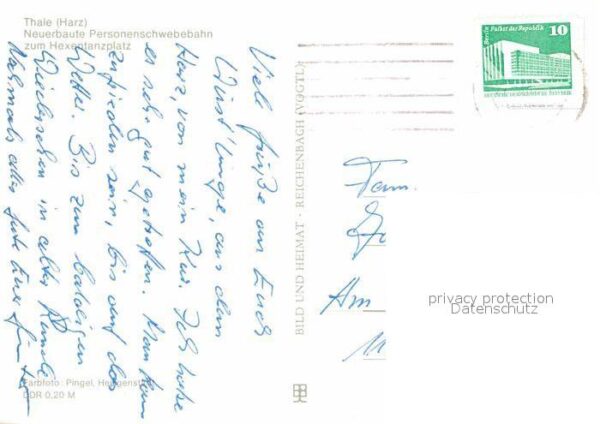 Thale (Harz)
Neuerbaute Personenschwebebahn
zum Hexentanzplatz
Viele Grüße an Euch
aus dem
Harz, von mein Kur. Ich habe
es sehr gut getroffen. Man kann
zufrieden sein, bis auf das
Wetter. Bis zum baldigen
in alter Runde
Nochmals alles Gute Euer Günter
Farbfoto: Pingel,
DDR 0,20 M
BILD UND HEIMAT · REICHENBACH (VOGTL)
Berlin Palast der Republik
10
Fam.
Am
privacy protection
Datenschutz